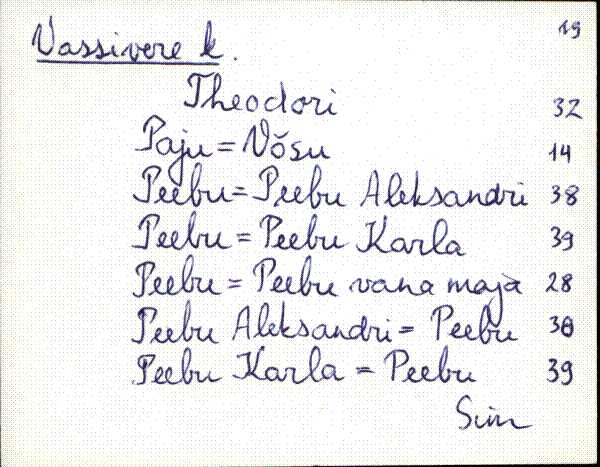 Vassivere k. 19
Theodori 32
Paju = Võsu 14
Peebu = Peebu Aleksandri 38
Peebu = Peebu Karla 39
Peebu = Peebu vana maja 28
Peebu Aleksandri = Peebu
Peebu Karla = Peebu 39